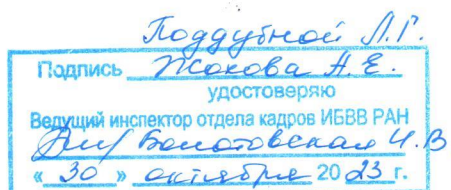 Поддубной Л.Г.
Подпись Жокова А.Е.
удостоверяю
Ведущий инспектор отдела кадров ИБВВ РАН
Болотовская И.В
« 30 » октября 20 23 г.